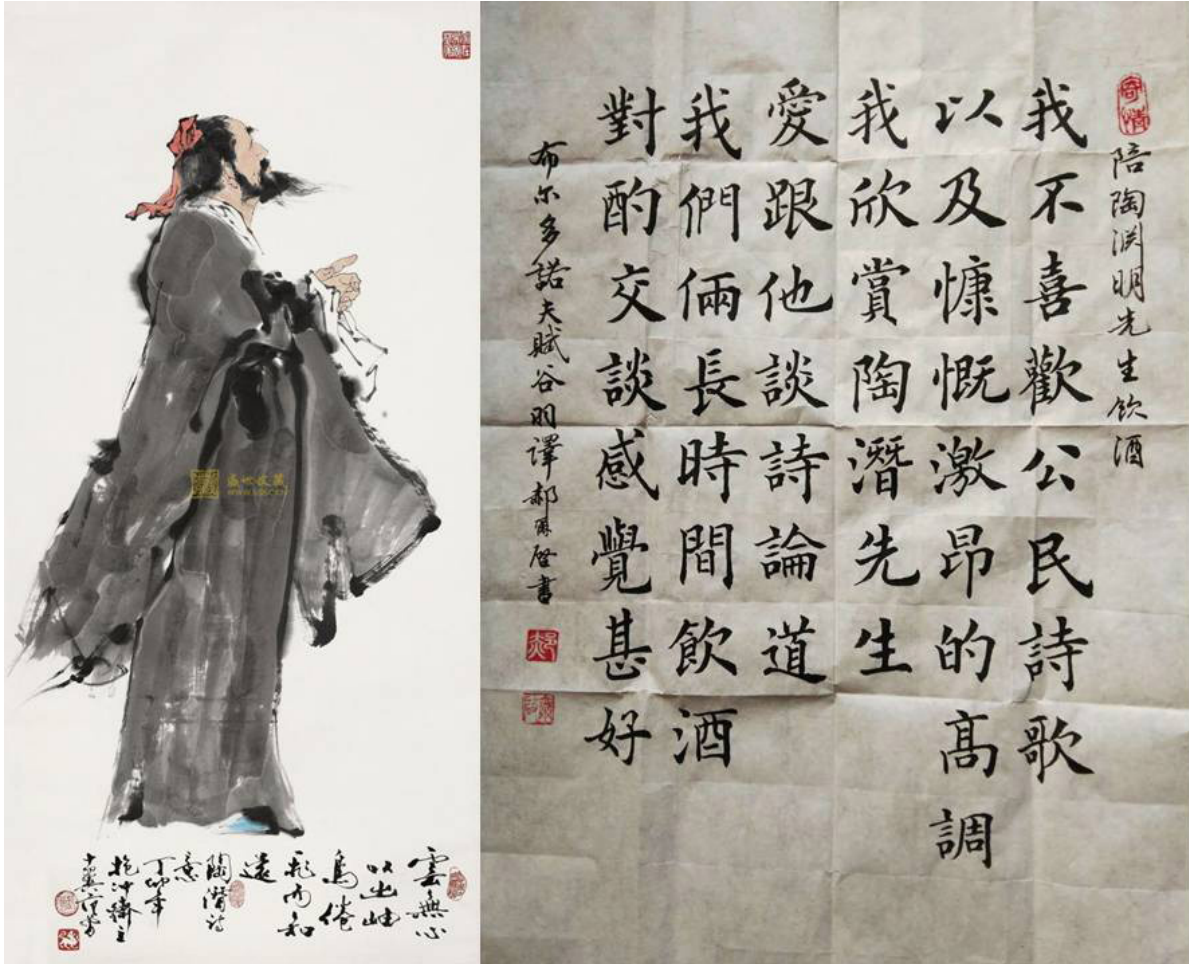 雲無心
以出岫
鳥倦
飛而知
還
陶潛詩
意
丁卯年
抱沖齋主
十翼范曾
盛世收藏
寄情
陪陶渊明先生飲酒
我不喜歡公民詩歌
以及慷慨激昂的髙調
我欣賞陶潛先生
愛跟他談詩論道
我們倆長時間飲酒
對酌交談感覺甚好
布尔多諾夫賦谷羽譯郝爾啓書